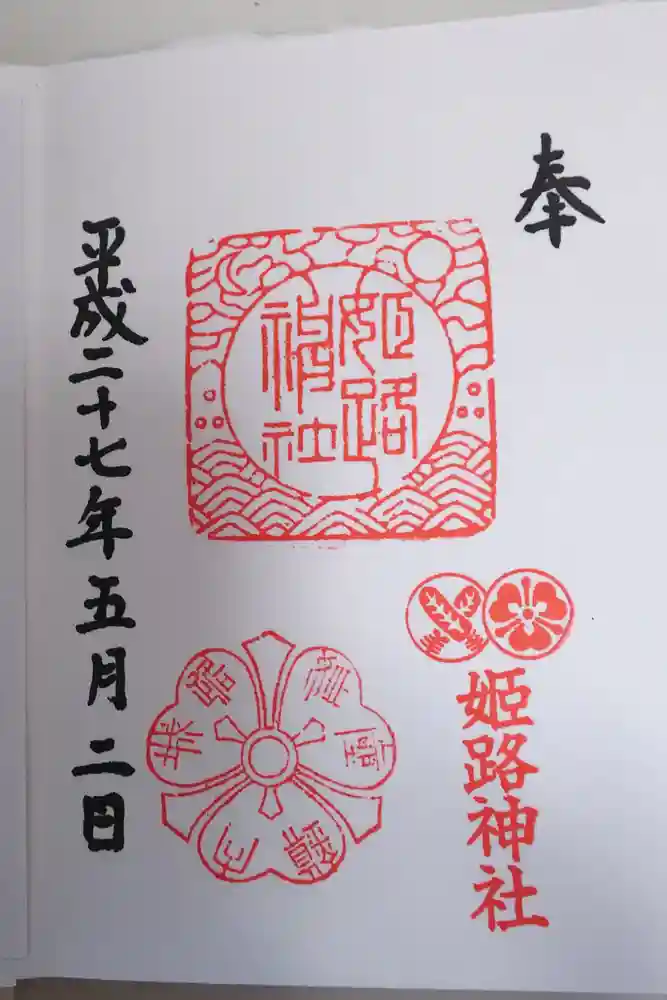 奉
姫路神社
姫路
神社
平成二十七年五月二日